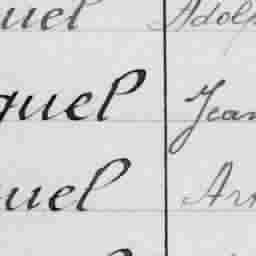 uel Adolp
quel Jean
uel Ar